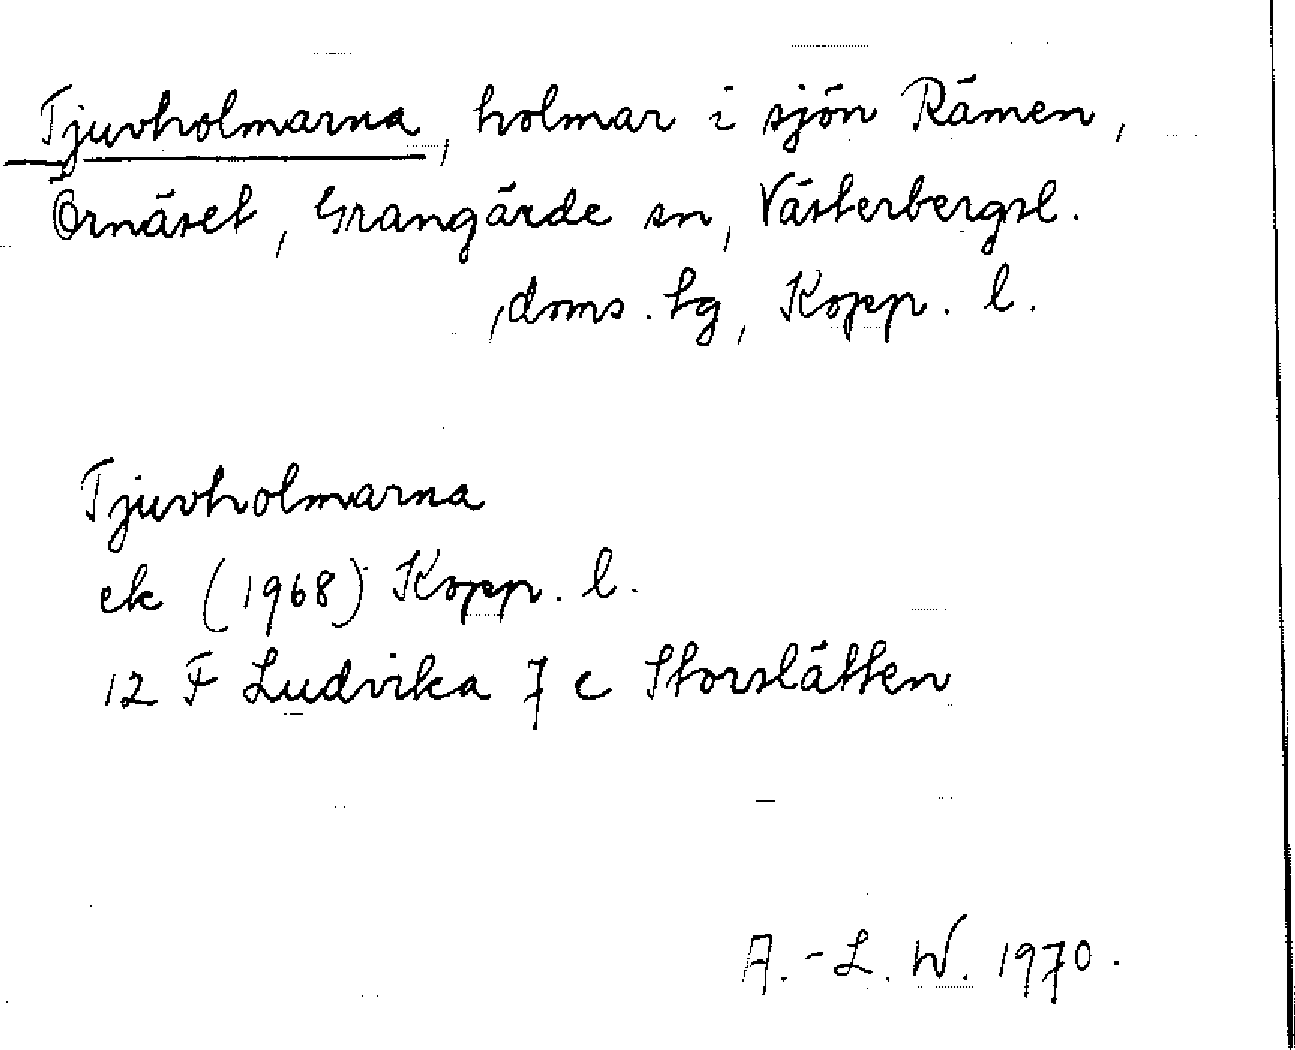 Tjuvholmarna, holmar i sjön Rämen,
Örnäset, Grangärde sn, Västerbergsl.
, doms. hg, Kopp. l.
Tjuvholmarna
ek (1968) Kopp. l.
12 F Ludvika 7 c Storslätten
A.-L. W. 1970.